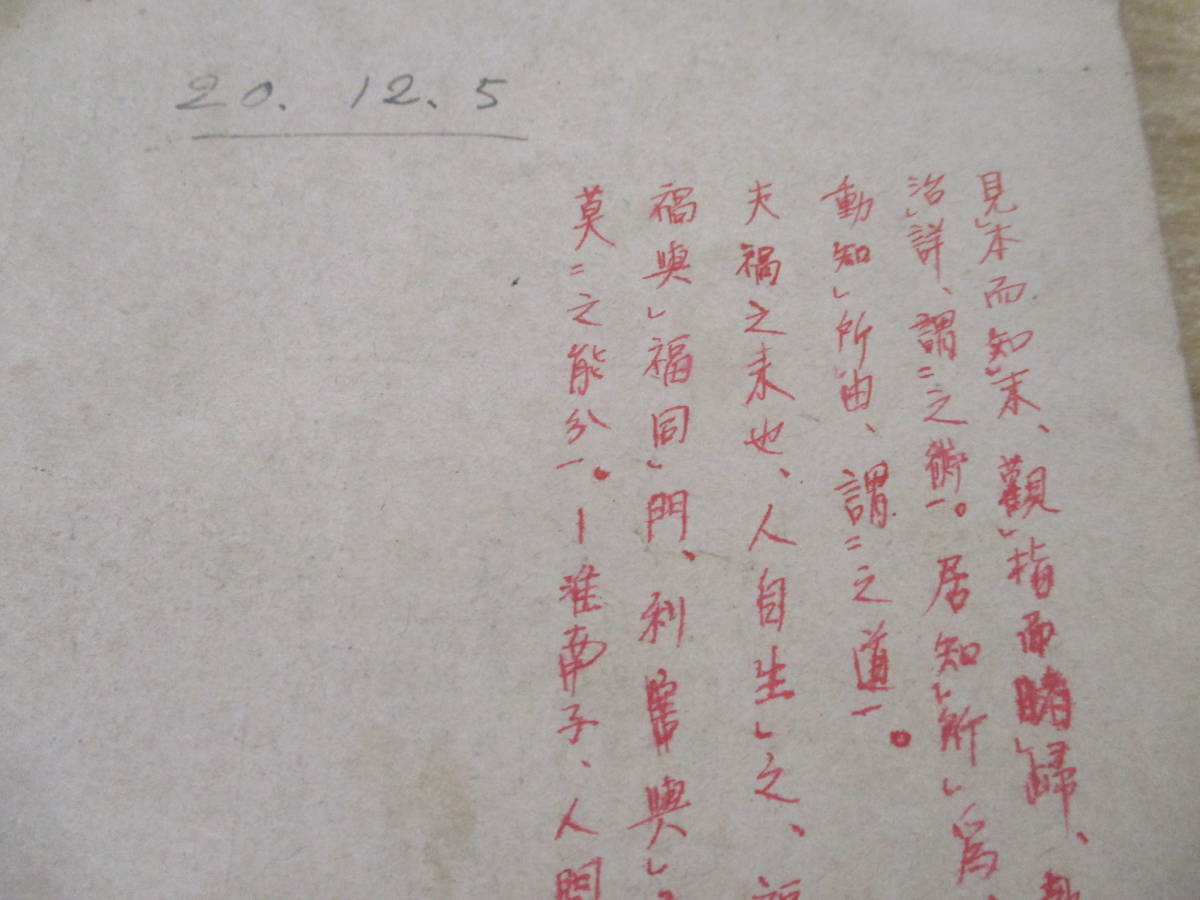 20. 12. 5
見レ本而知レ末、觀レ指而睹レ歸、執
治レ詳、謂二之術一。居知レ所レ為、
動知レ所レ由、謂二之道一。
夫禍之来也、人自生レ之、福
禍與レ福同レ門、利害與レ
莫二之能分一。ー淮南子、人間